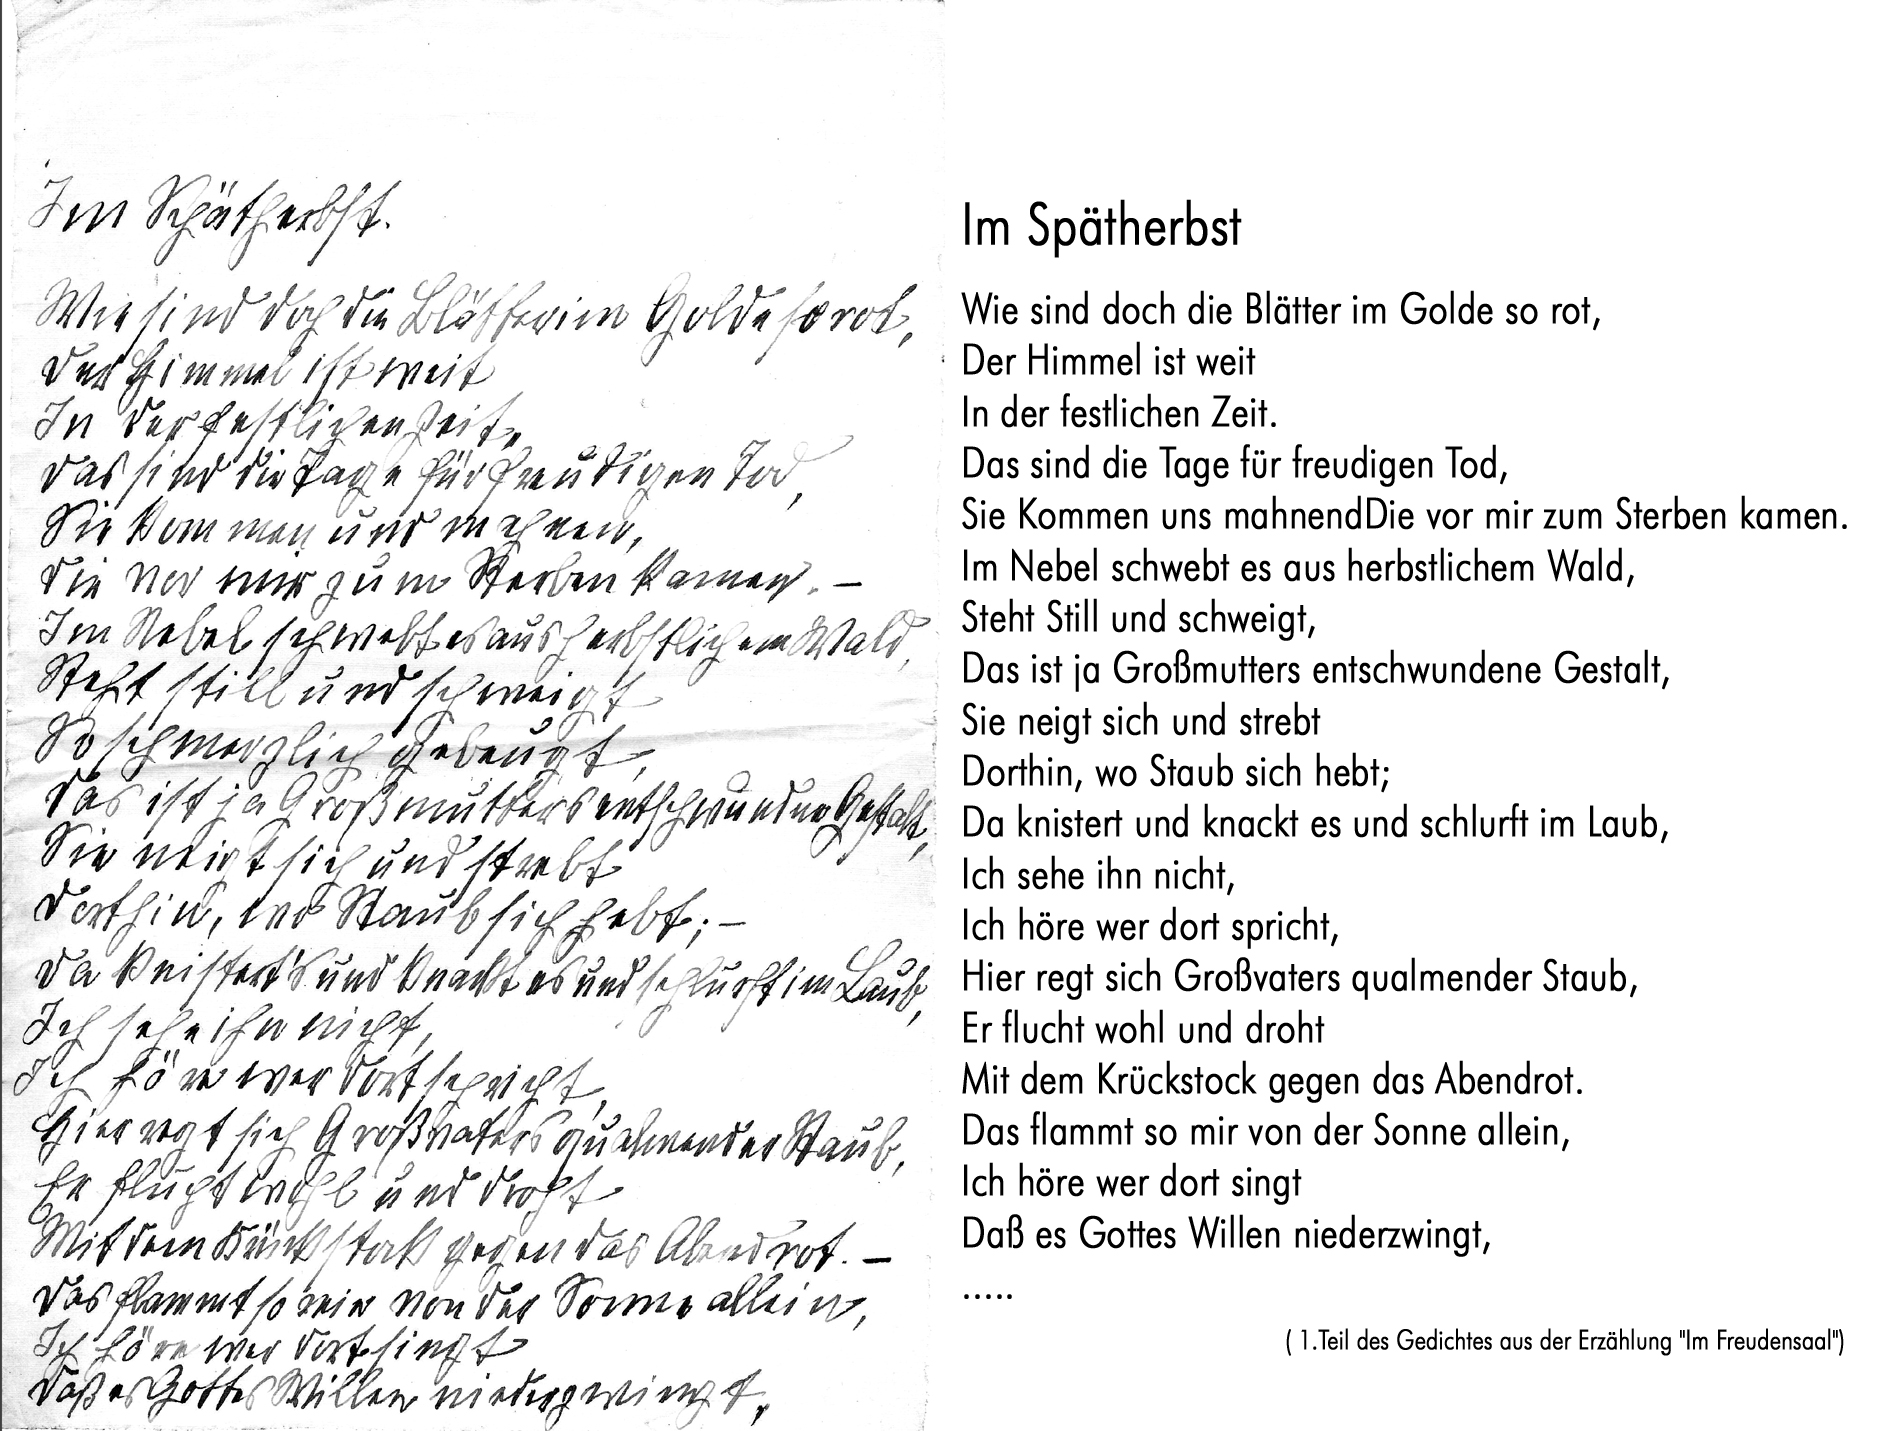 Im Spätherbst.
Wie sind doch die Blätter im Golde so rot,
Der Himmel ist weit
In der festlichen Zeit.
Das sind die Tage für freudigen Tod,
Sie kommen und mahnen,
Die vor mir zum Sterben kamen. –
Im Nebel schwebt es aus herbstlichem Wald,
Steht still und schweigt
So schmerzlich gebeugt,
Das ist ja Großmutters entschwundne Gestalt,
Sie neigt sich und strebt
Dorthin, wo Staub sich hebt; –
Da knistert's und knackt es und schlurft im Laub,
Ich sehe ihn nicht,
Ich höre wer dort spricht,
Hier regt sich Großvaters qualmender Staub,
Er flucht wohl und droht
Mit dem Krückstock gegen das Abendrot. –
Das flammt so mir von der Sonne allein,
Ich höre wer dort singt
Daß es Gottes Willen niederzwingt,
Im Spätherbst
Wie sind doch die Blätter im Golde so rot,
Der Himmel ist weit
In der festlichen Zeit.
Das sind die Tage für freudigen Tod,
Sie Kommen uns mahnendDie vor mir zum Sterben kamen.
Im Nebel schwebt es aus herbstlichem Wald,
Steht Still und schweigt,
Das ist ja Großmutters entschwundene Gestalt,
Sie neigt sich und strebt
Dorthin, wo Staub sich hebt;
Da knistert und knackt es und schlurft im Laub,
Ich sehe ihn nicht,
Ich höre wer dort spricht,
Hier regt sich Großvaters qualmender Staub,
Er flucht wohl und droht
Mit dem Krückstock gegen das Abendrot.
Das flammt so mir von der Sonne allein,
Ich höre wer dort singt
Daß es Gottes Willen niederzwingt,
.....
( 1.Teil des Gedichtes aus der Erzählung "Im Freudensaal")